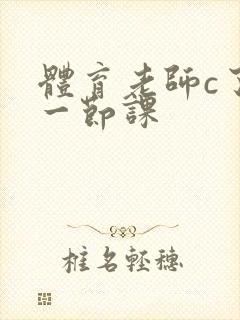 體育老師c了
一節課
椎名輕穗